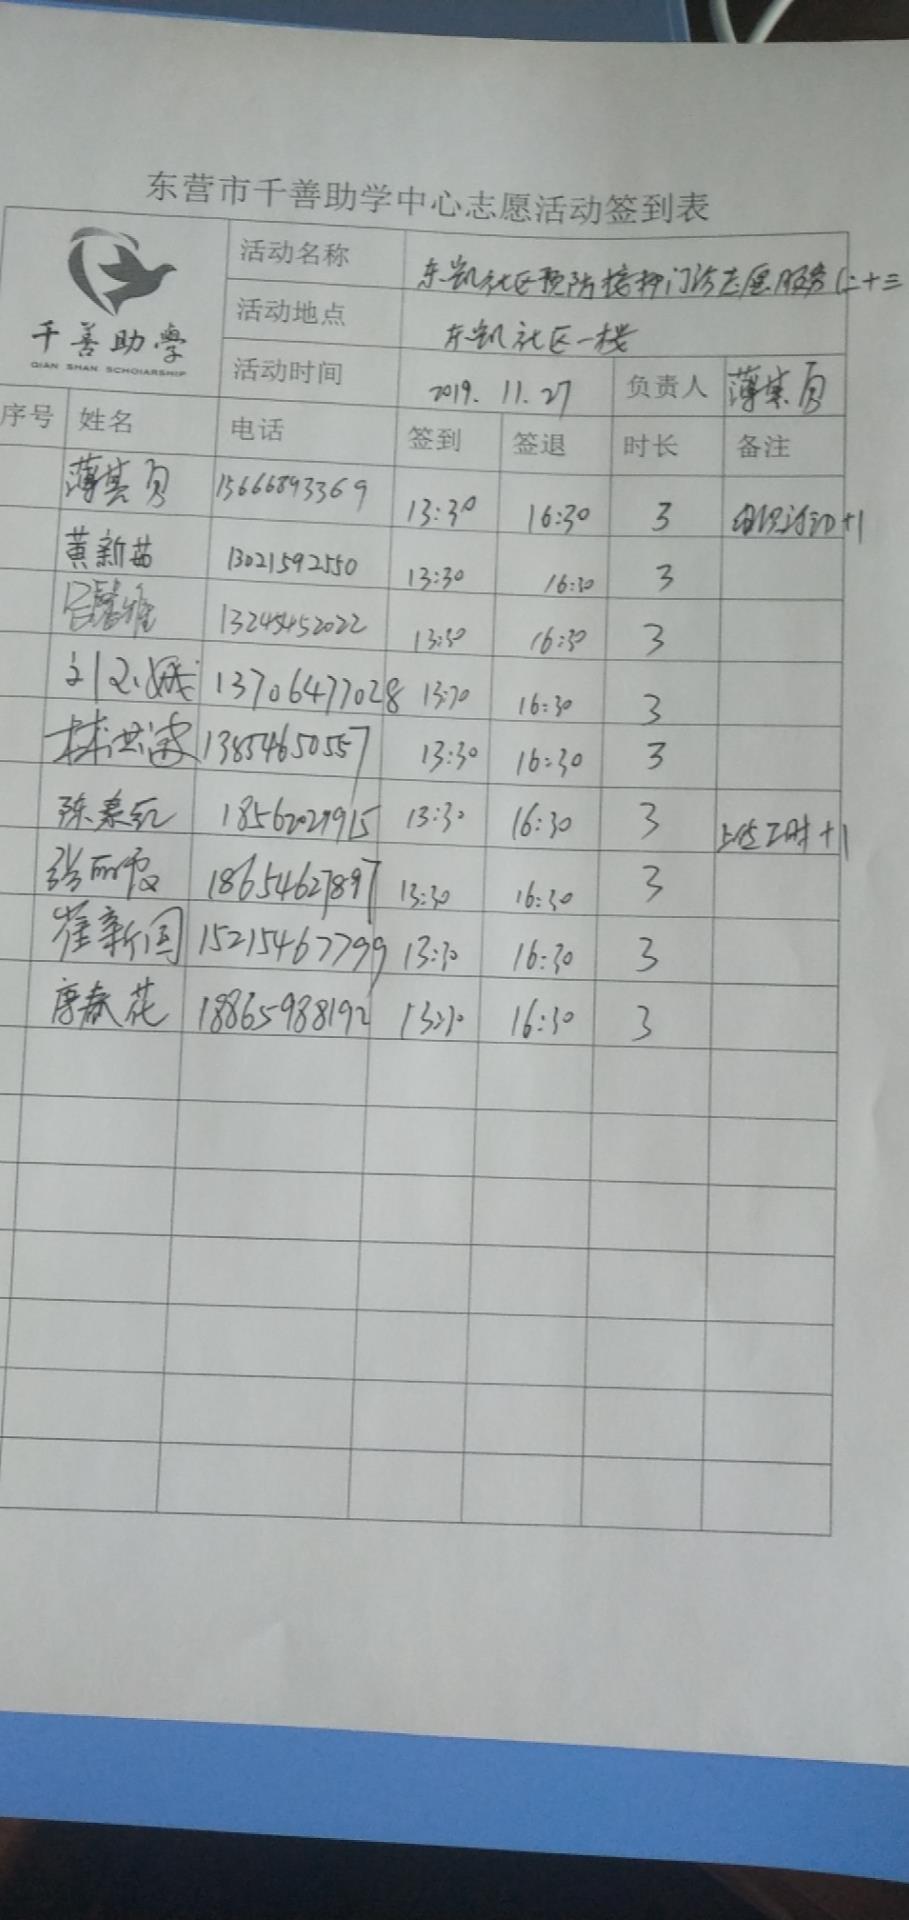 东营市千善助学中心志愿活动签到表
千善助學
QIAN SHAN SCHOIARSHIP
活动名称 东凯社区预防接种门诊志愿服务(二十三
活动地点 东凯社区一楼
活动时间 2019.11.27 负责人 薄其贞
序号 姓名 电话 签到 签退 时长 备注
薄其贞 15666893369 13:30 16:30 3 组织活动+1
黄新苗 13021592550 13:30 16:30 3
13245452022 13:30 16:30 3
13706477028 13:30 16:30 3
林洪波 13854650557 13:30 16:30 3
陈嘉红 18562029915 13:30 16:30 3 上传工时+1
张丽霞 18654627897 13:30 16:30 3
崔新阁 15215467799 13:30 16:30 3
唐春花 18865988192 13:30 16:30 3